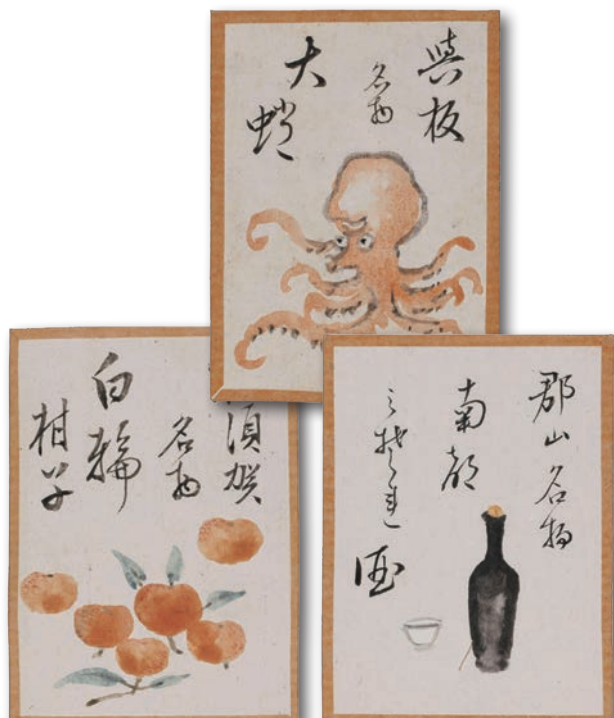 與板
名物
大蛸
須賀
名物
白輪
柑子
郡山名物
南都
酒